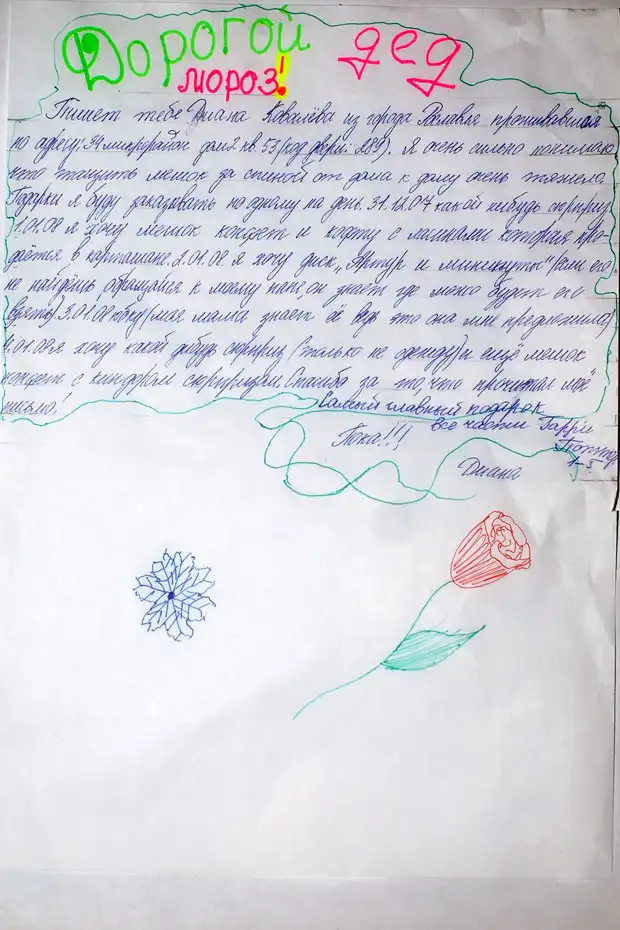 Дорогой дед
мороз!
Пишет тебе Диана Ковалёва из города проживающая
по адресу: 34 микрорайон дом 2 кв. 53 (код двери: 289). Я очень сильно понимаю
что тащить мешок за спиной от дома к дому очень тяжело.
Подарки я буду заказывать по одному на день. 31.12.07 какой нибудь сюрприз
1.01.08 я хочу мешок конфет и кофту с
даётся в 2.01.08. я хочу диск „Артур и минипуты" (если его
не найдёшь, обращайся к моему папе, он знает где можно будет его
взять) 3.01.08 юбку (моя мама знает её ведь это она мне предложила)
4.01.08 я хочу какой нибудь сюрприз (только не одежду) и ещё мешок
конфет с киндором сюрпризом. Спасибо за то, что прочитал моё
письмо!
Самый главный подарок
все части Гарри
Поттер
1-5
Пока!!!
Диана